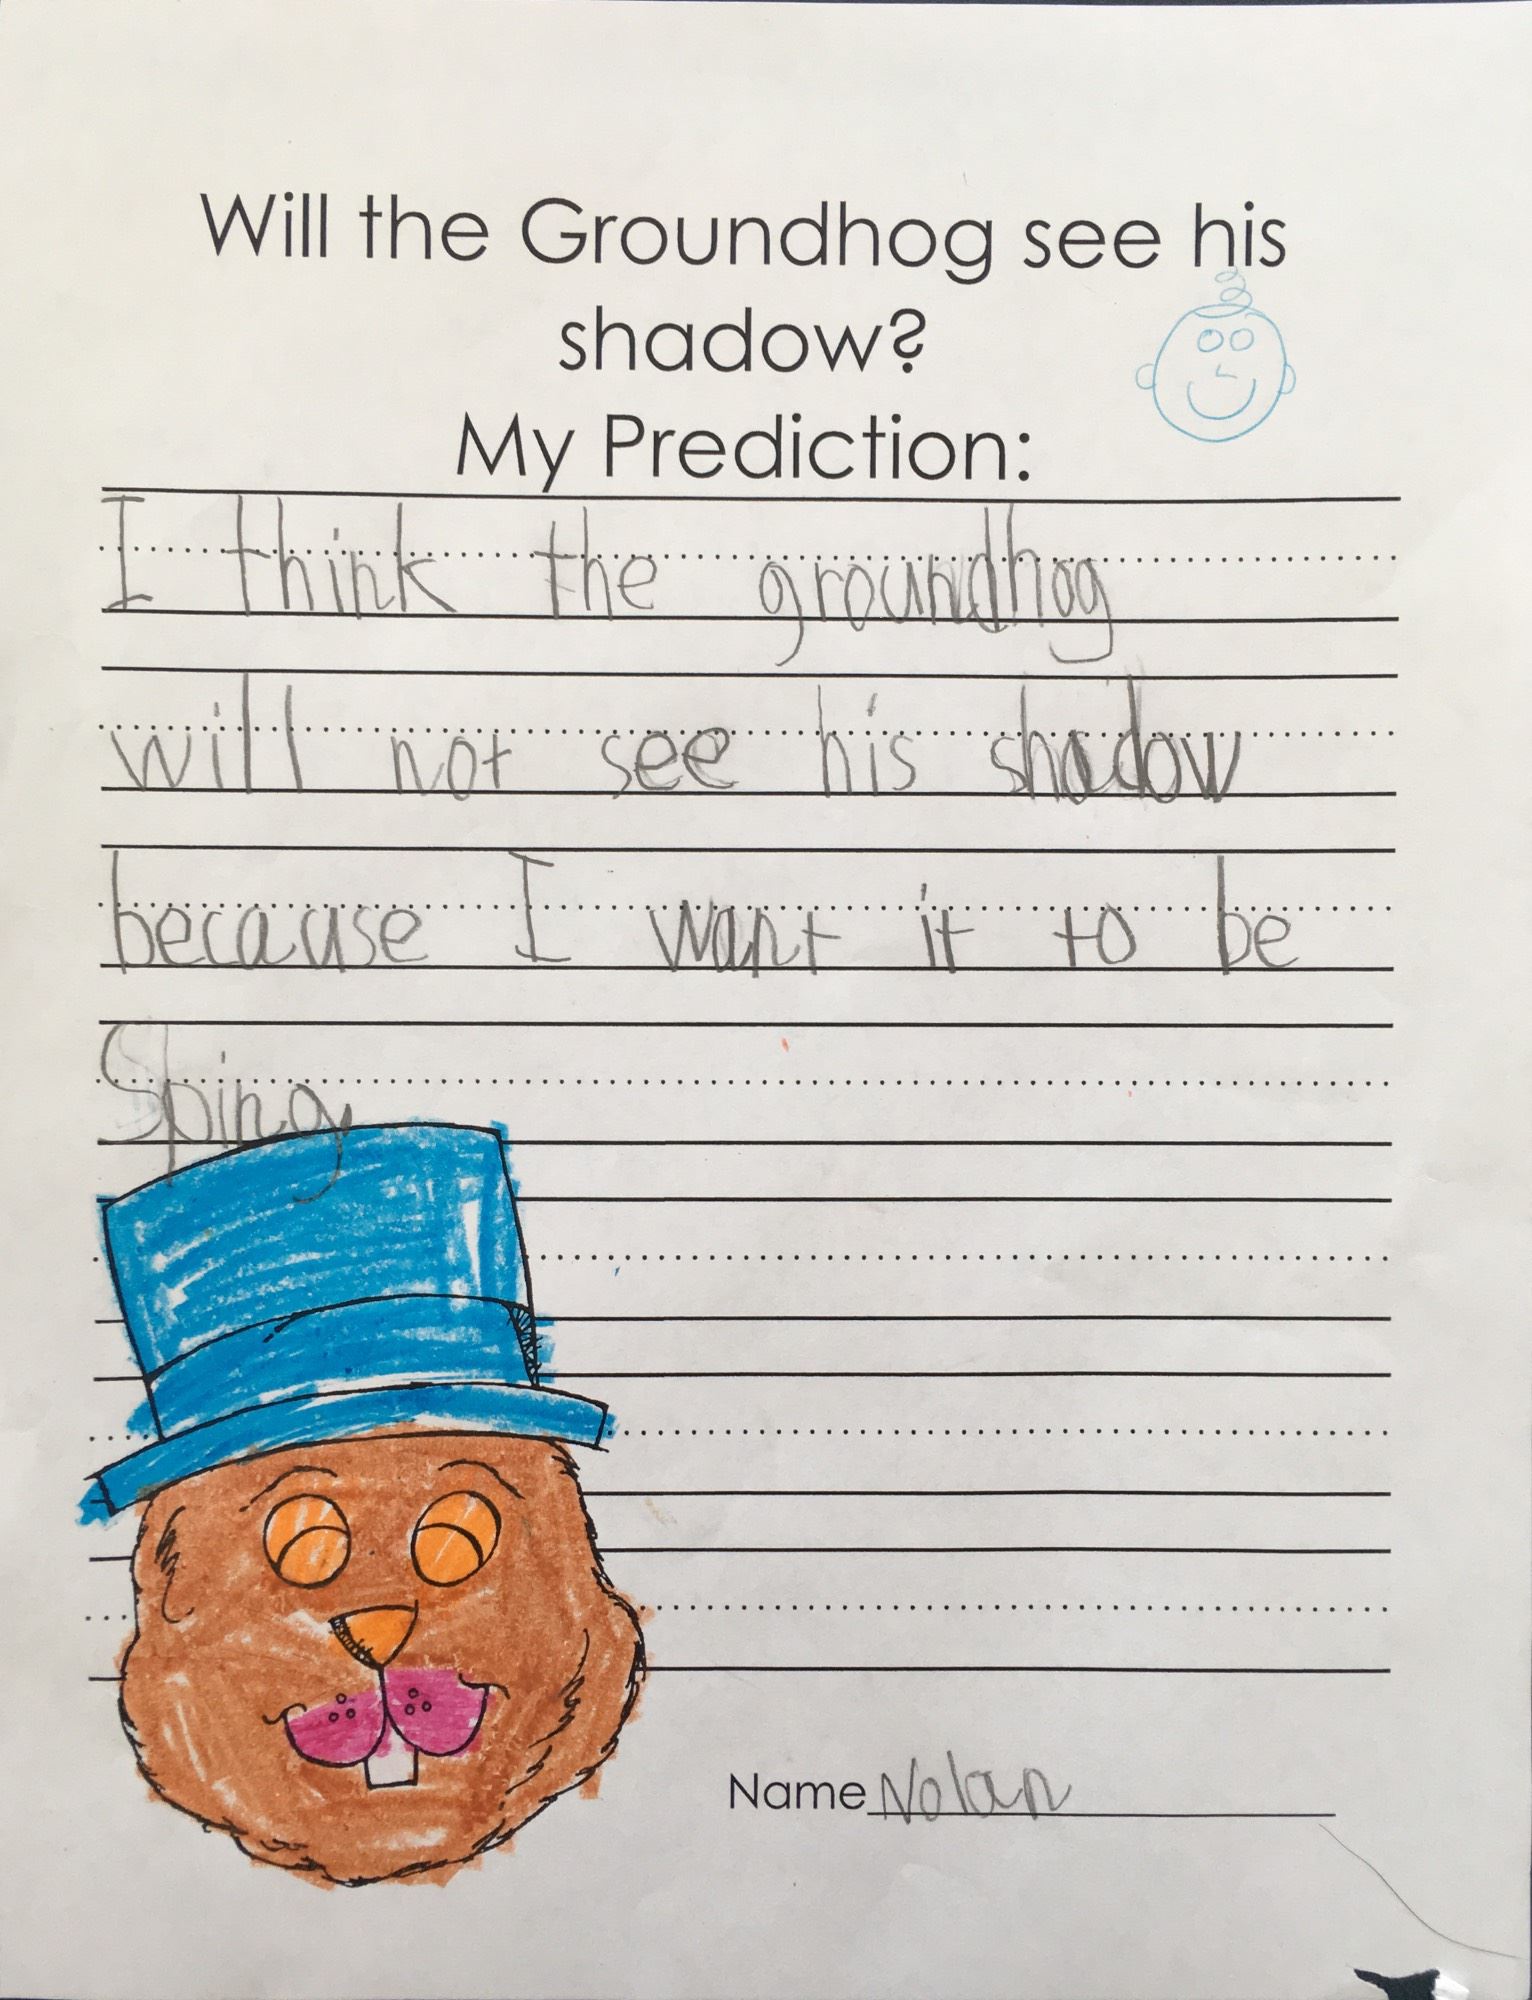 Will the Groundhog see his
shadow?
My Prediction:
I think the groundhog
will not see his shadow
because I want it to be
Sping.
Name Nolan